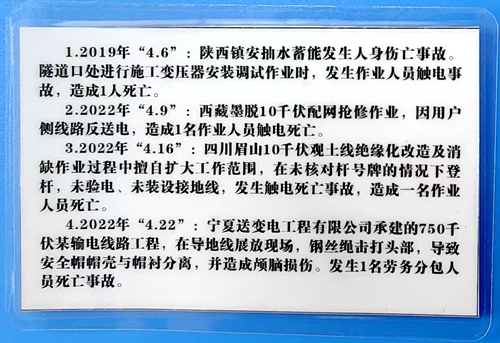 1.2019年“4.6”：陕西镇安抽水蓄能发生人身伤亡事故。
隧道口处进行施工变压器安装调试作业时，发生作业人员触电事
故，造成1人死亡。
2.2022年“4.9”：西藏墨脱10千伏配网抢修作业，因用户
侧线路反送电，造成1名作业人员触电死亡。
3.2022年“4.16”：四川眉山10千伏观土线绝缘化改造及消
缺作业过程中擅自扩大工作范围，在未核对杆号牌的情况下登
杆，未验电、未装设接地线，发生触电死亡事故，造成一名作业
人员死亡。
4.2022年“4.22”：宁夏送变电工程有限公司承建的750千
伏某输电线路工程，在导地线展放现场，钢丝绳击打头部，导致
安全帽帽壳与帽衬分离，并造成颅脑损伤。发生1名劳务分包人
员死亡事故。